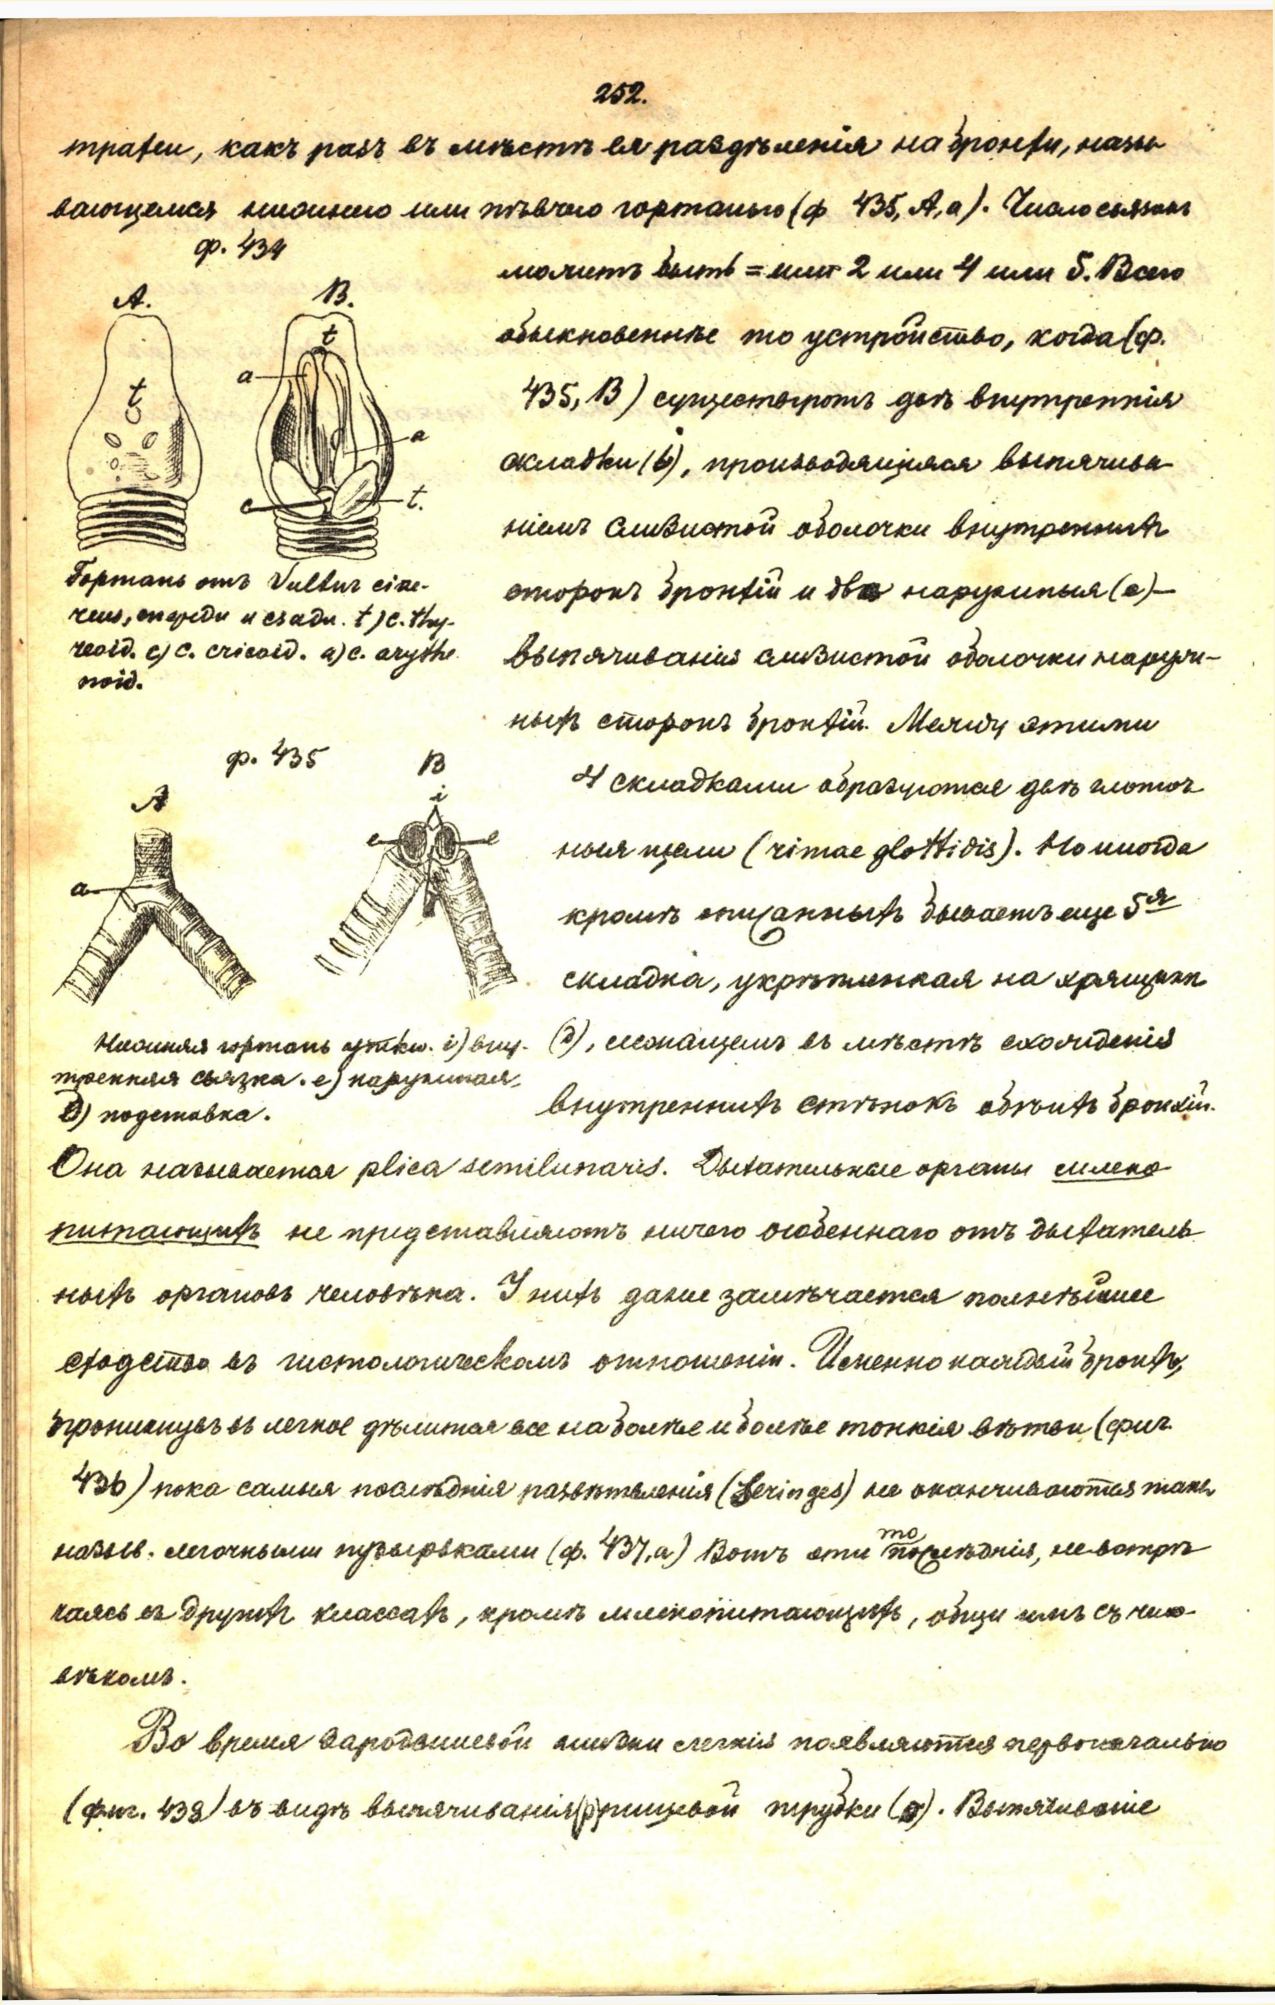 252.
трахеи, какъ разъ въ мѣстѣ ея раздѣленія на бронхи, назы-
вающемся нижнею или пѣвчею гортанью (ф 435, А, а). Число связокъ
ф. 434
можетъ быть = или 2 или 4 или 5. Всего
А. В.
обыкновеннѣе то устройство, когда (ф.
t t
a
435, В) существуютъ двѣ внутреннія
a
складки (b), производящіяся выпячива-
c t.
ніемъ слизистой оболочки внутреннихъ
сторонъ бронхій и два наружныя (e) —
выпячиванія слизистой оболочки наруж-
ныхъ сторонъ бронхій. Между этими
Гортань отъ Vultur cine-
reus, спереди и сзади. t) c. thy-
reoid. c) c. cricoid. a) c. arythe
noid.
ф. 435
А В
i
e e
a
4 складками образуются двѣ глоточ
ныя щели (rimae glottidis). Но иногда
кромѣ описанныхъ бываетъ еще 5я
складка, укрѣпленная на хрящикѣ
(d), лежащемъ въ мѣстѣ схожденія
внутреннихъ стѣнокъ обѣихъ бронхій.
Нижняя гортань утки. i) вну-
тренняя связка. e) наружная,
d) подставка.
Она называется plica semilunaris. Дыхательные органы млеко
питающихъ не представляютъ ничего особеннаго отъ дыхатель
ныхъ органовъ человѣка. У нихъ даже замѣчается полнѣйшее
сходство въ гистологическомъ отношеніи. Именно каждый бронхъ,
проникнувъ въ легкое дѣлится все на болѣе и болѣе тонкія вѣтви (фиг.
436) пока самыя послѣднія развѣтвленія не оканчиваются такъ
назыв. легочными пузырьками (ф. 437, а) Вотъ эти то послѣднія, не встрѣ
чаясь въ другихъ классахъ, кромѣ млекопитающихъ, общи имъ съ чело-
вѣкомъ.
Во время зародышевой жизни легкія появляются первоначально
(фиг. 438) въ видѣ выпячиванія (p) пищевой трубки (o). Выпячиваніе